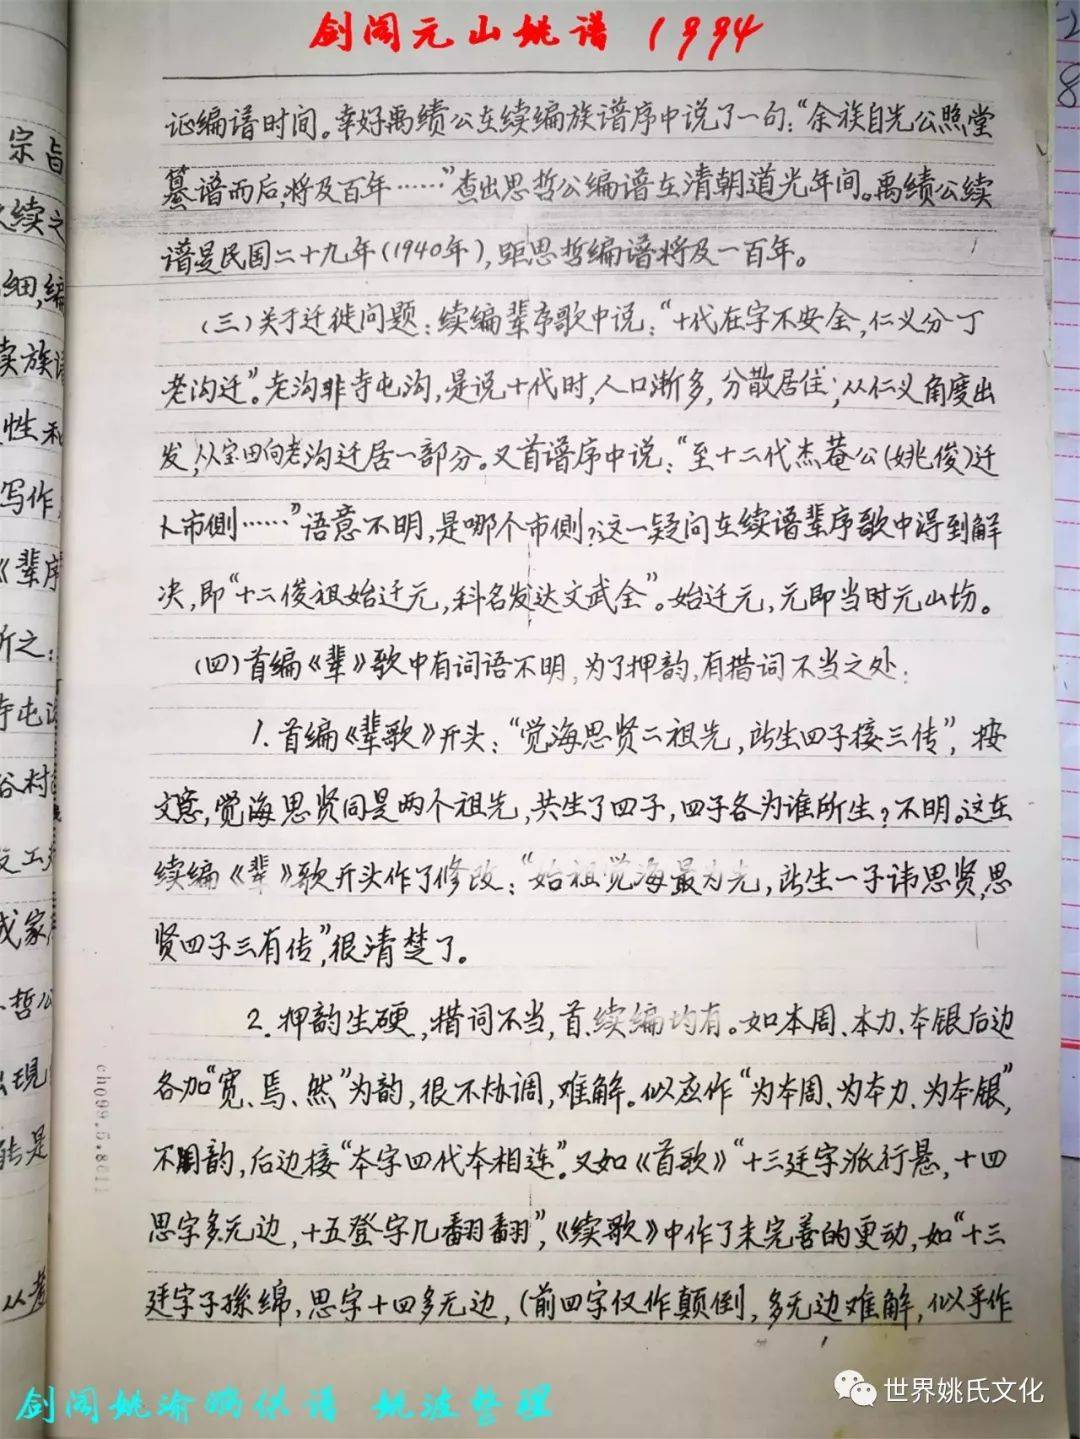 剑阁元山姚谱 1994
证编谱时间。幸好禹绩公在续编族谱序中说了一句：“余族自先公照堂
纂谱而后,将及百年……”查出思哲公编谱在清朝道光年间。禹绩公续
谱是民国二十九年(1940年)，距思哲编谱将及一百年。
(三)关于迁徙问题：续编辈序歌中说：“十代在字不安全,仁义分丁
老沟迁”。老沟非寺屯沟，是说十代时,人口渐多，分散居住；从仁义角度出
发,从宝田向老沟迁居一部分。又首谱序中说：“至十二代杰菴公(姚俊)迁
卜市侧……”语意不明,是哪个市侧?这一疑问在续谱辈序歌中得到解
决，即“十二俊祖始迁元，科名发达文武全”。始迁元，元即当时元山场。
(四)首编《辈》歌中有词语不明，为了押韵,有措词不当之处：
1.首编《辈歌》开头：“觉海思贤二祖先，此生四子接三传”，按
文意,觉海思贤同是两个祖先，共生了四子，四子各为谁所生？不明。这在
续编《辈》歌开头作了修改：“始祖觉海最为先，此生一子讳思贤,思
贤四子三有传”,很清楚了。
2.押韵生硬，措词不当，首、续编均有。如本周、本力、本银后边
各加“宽、焉、然”为韵，很不协调，难解。似应作“为本周、为本力、为本银”，
不用韵，后边接“本字四代本相连”。又如《首歌》“十三廷字派行悬，十四
思字多无边，十五登字几翻翻”，《续歌》中作了未完善的更动，如“十三
廷字子孫绵，思字十四多无边，(前四字仅作颠倒，多无边难解，似乎作
宗旨
续之
细,编
续族谱
性和
写作
《辈序
所之：
寺屯沟
谷村
成家
哲公
出现
转是
剑阁姚渝鹏供谱 姚波整理
世界姚氏文化